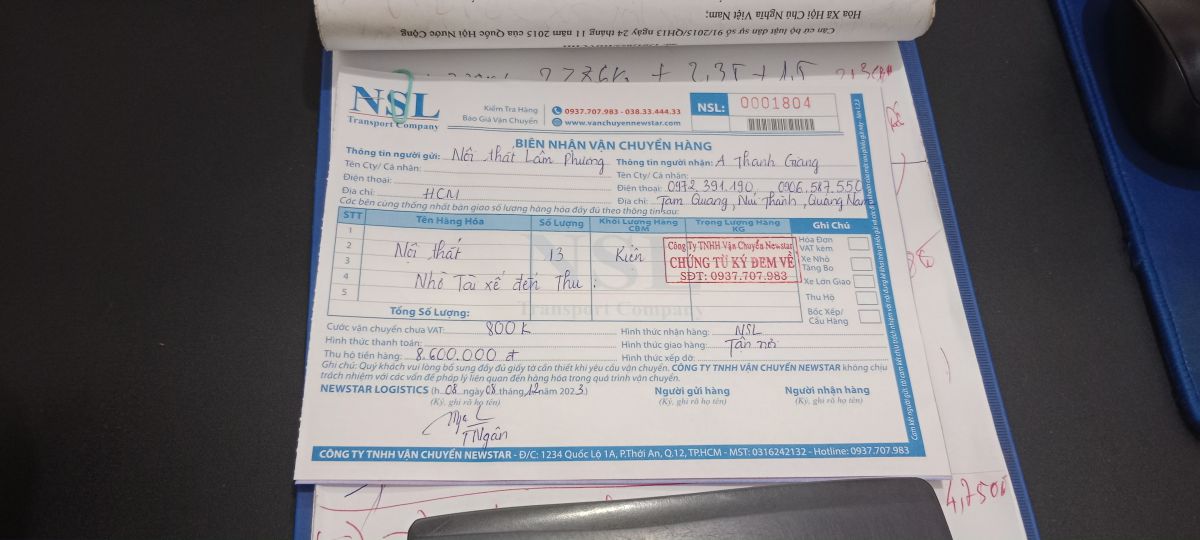 Căn cứ bộ luật dân sự số 91/2015/QH13 ngày 24 tháng 11 năm 2015 của Quốc Hội Nước Cộng
Hòa Xã Hội Chủ Nghĩa Việt Nam;
+ 2,3T + 1,5
NSL
Transport Company
Kiểm Tra Hàng
Báo Giá Vận Chuyển
0937.707.983 - 038.33.444.33
www.vanchuyennewstar.com
NSL: 0001804
BIÊN NHẬN VẬN CHUYỂN HÀNG
Thông tin người gửi: Nội thất Lâm Phương
Thông tin người nhận: A Thanh Giang
Tên Cty/ Cá nhân:
Tên Cty/ Cá nhân:
Điện thoại:
Điện thoại: 0972.391.190, 0906.587.550
Địa chỉ: HCM
Địa chỉ: Tam Quang, Núi Thành, Quảng Nam
Các bên cùng thống nhất bàn giao số lượng hàng hóa đầy đủ theo thông tin sau:
STT Tên Hàng Hóa Số Lượng Khối Lượng Hàng CBM Trọng Lượng Hàng KG Ghi Chú
1
2
3
4
5
Nội thất 13 Kiện
Nhờ Tài xế đến Thu:
Công Ty TNHH Vận Chuyển Newstar
CHỨNG TỪ KÝ ĐEM VỀ
SĐT: 0937.707.983
Hóa Đơn VAT kèm
Xe Nhỏ Tăng Bo
Xe Lớn Giao
Thu Hộ
Bốc Xếp/ Cẩu Hàng
NSL
Transport Company
Tổng Số Lượng:
Cước vận chuyển chưa VAT: 800K
Hình thức nhận hàng: NSL
Hình thức thanh toán:
Hình thức giao hàng: Tận nơi
Thu hộ tiền hàng: 8.600.000 đ
Hình thức xếp dỡ:
Ghi chú: Quý khách vui lòng bổ sung đầy đủ giấy tờ cần thiết khi yêu cầu vận chuyển. CÔNG TY TNHH VẬN CHUYỂN NEWSTAR không chịu
trách nhiệm với các vấn đề pháp lý liên quan đến hàng hóa trong quá trình vận chuyển.
NEWSTAR LOGISTICS (h 08 ngày 08 tháng 12 năm 2023)
(Ký, ghi rõ họ tên)
Người gửi hàng
(Ký, ghi rõ họ tên)
Người nhận hàng
(Ký, ghi rõ họ tên)
TTNgân
CÔNG TY TNHH VẬN CHUYỂN NEWSTAR - Đ/C: 1234 Quốc Lộ 1A, P.Thới An, Q.12, TP.HCM - MST: 0316242132 - Hotline: 0937.707.983
4,7500